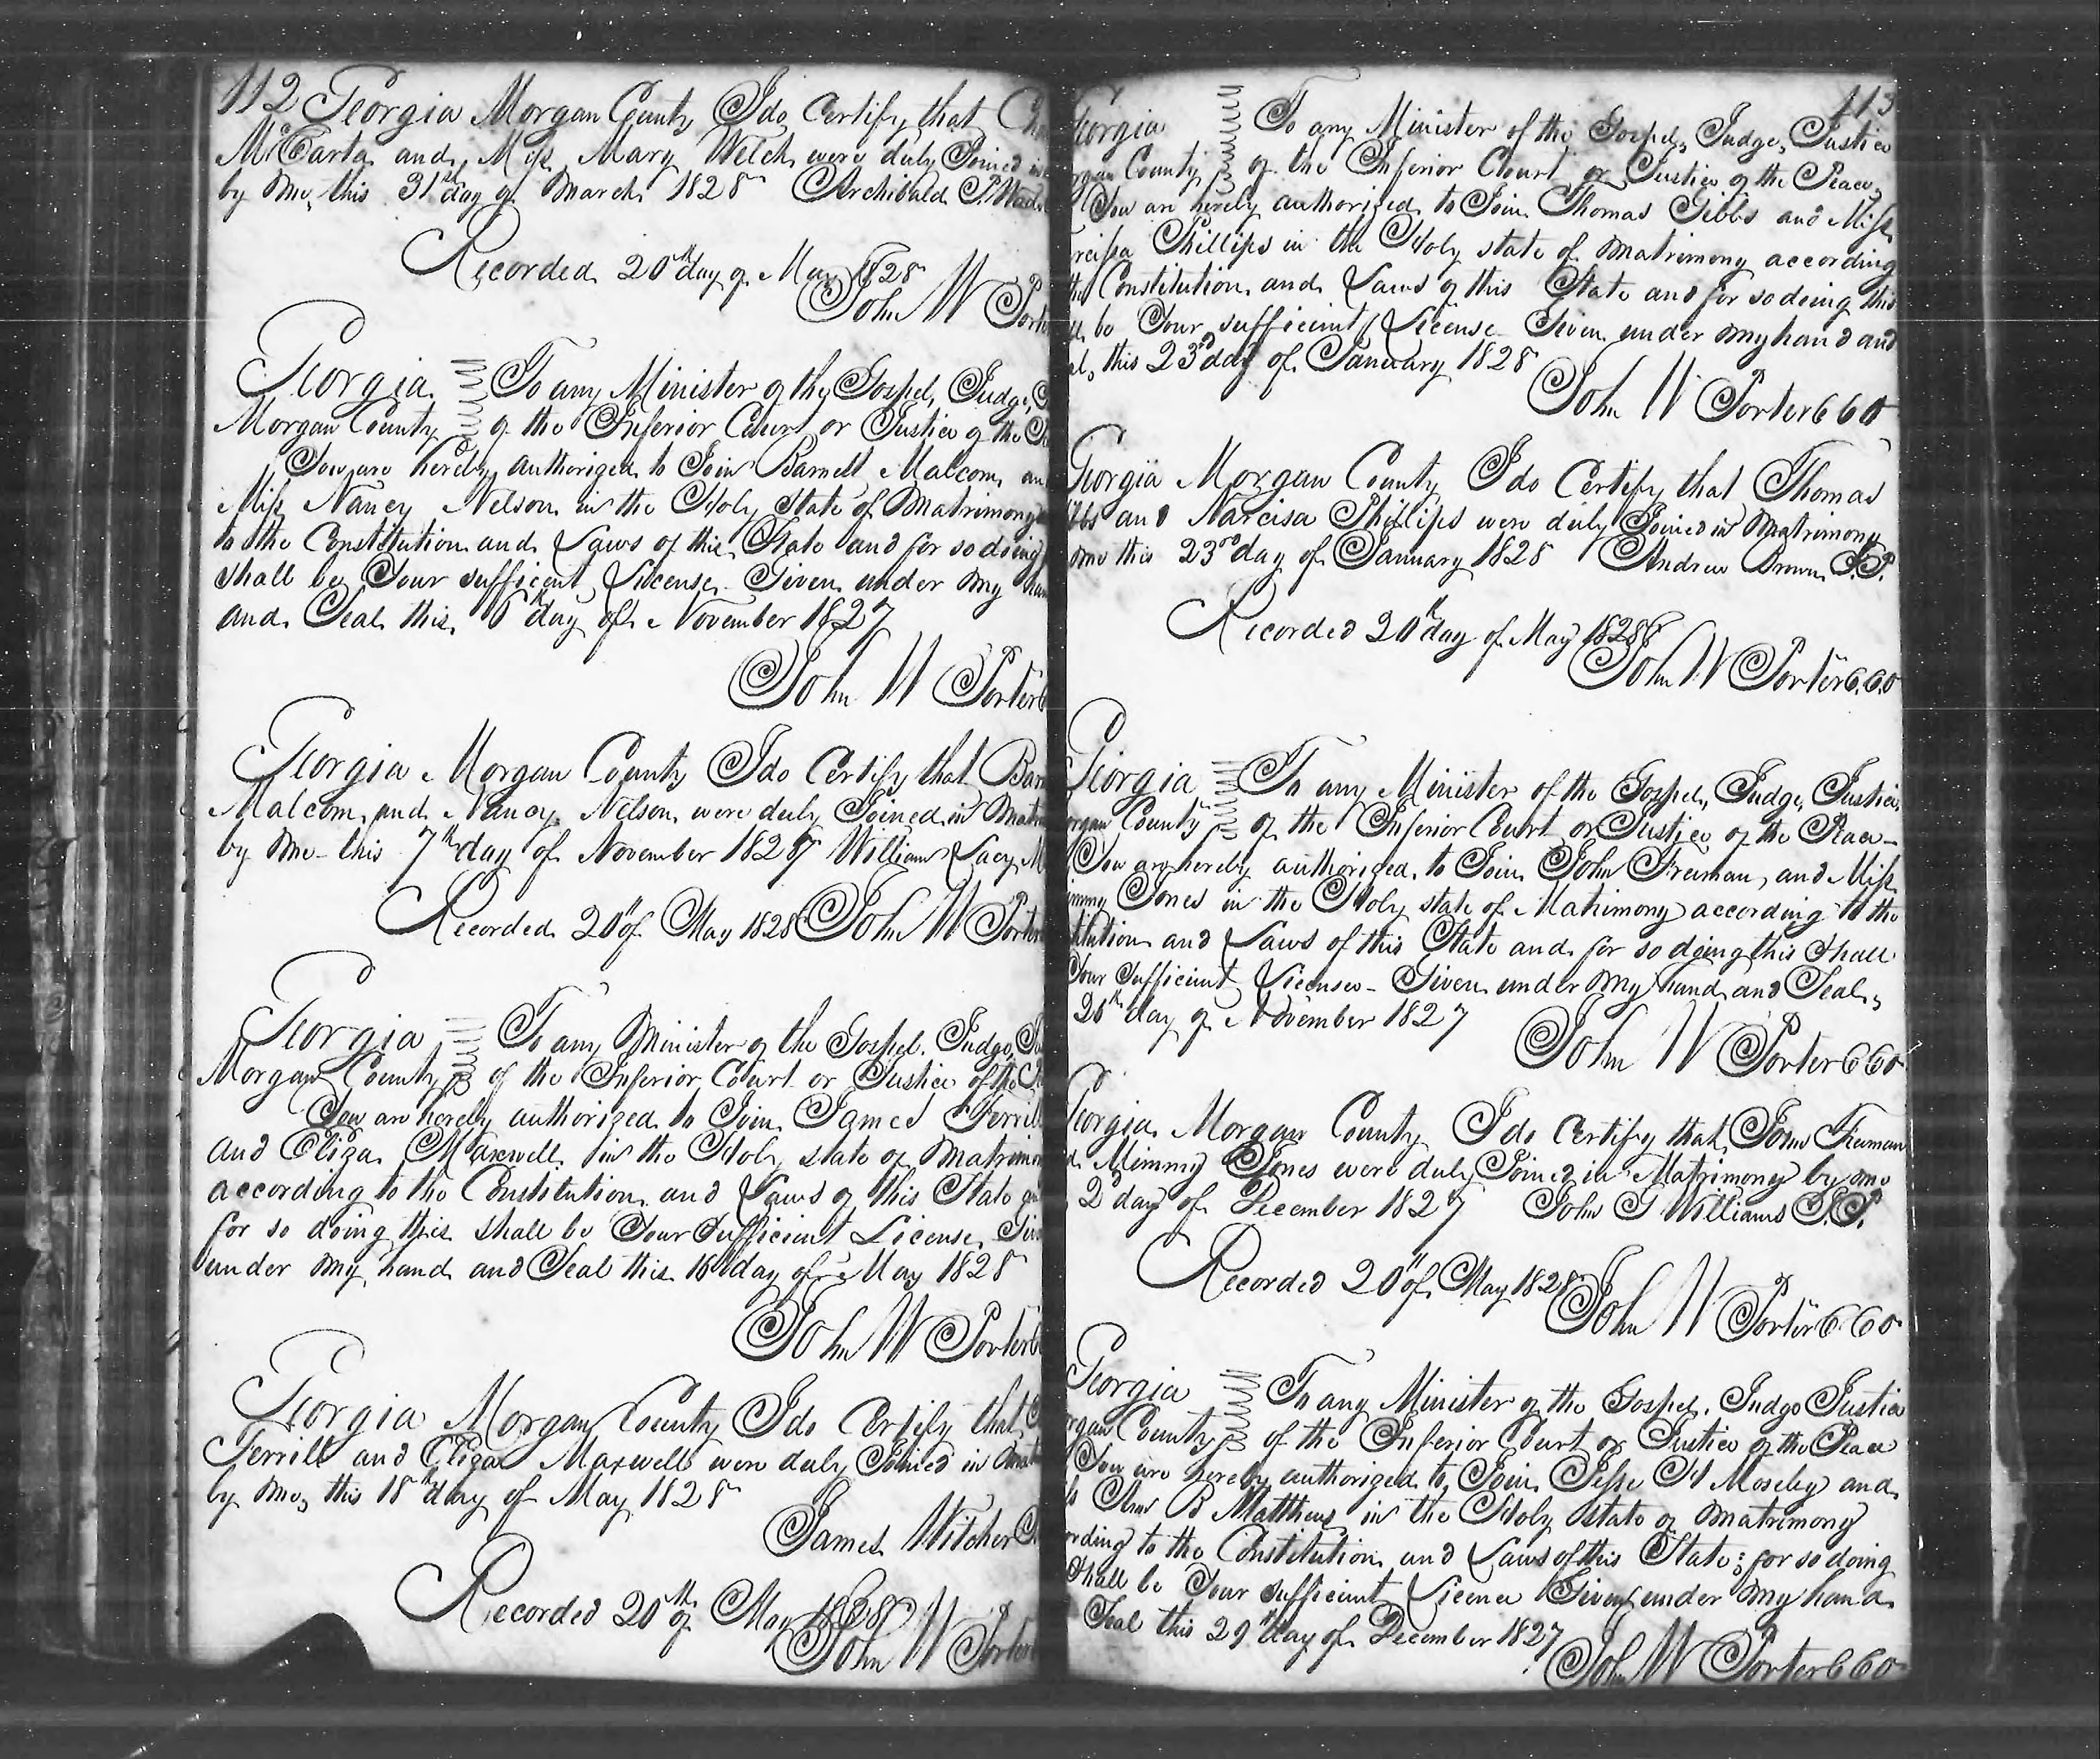 112 Georgia Morgan County I do Certify that
McCarta and Miss Mary Welch were duly Joined in
by me this 31st day of March 1828 Archibald
Recorded 20th day of May 1828
John W
Georgia To any Minister of the Gospel, Judge,
Morgan County of the Inferior Court or Justice of the
You are hereby authorized to Join Barnett Malcom
Miss Nancy Nelson in the Holy State of Matrimony
to the Constitution and Laws of this State and for so doing
shall be Your sufficent License Given under my
and Seal this 6th day of November 1827
John W Porter
Georgia Morgan County I do Certify that
Malcom and Nancy Nelson were duly Joined in
by me this 7th day of November 1827 William Lacy
Recorded 20th of May 1828 John W Porter
Georgia To any Minister of the Gospel. Judge,
Morgan County of the Inferior Court or Justice of the
You are hereby authorized to Join James Terrill
and Eliza Maxwell in the Holy state of
according to the Constitution and Laws of this State
for so doing this shall be Your Sufficient License
under my hand and Seal this 16th day of May 1828
John W Porter
Georgia Morgan County I do Certify that
Terrill and Eliza Maxwell were duly Joined in
by me, this 18th day of May 1828
James Witcher
Recorded 20th of May 1828
John W Porter
113
Georgia To any Minister of the Gospel, Judge, Justice
County of the Inferior Court or Justice of the Peace,
You are hereby authorized to Join Thomas Gibbs and Miss
Phillips in the Holy state of Matrimony according
the Constitution and Laws of this State and for so doing this
be Your sufficient License Given under my hand and
this 23rd day of January 1828
John W Porter CCO
Georgia Morgan County I do Certify that Thomas
and Narcisa Phillips were duly Joined in Matrimony
me this 23rd day of January 1828 Andrew Brown J.P.
Recorded 20th day of May 1828
John W Porter C.C.O
Georgia To any Minister of the Gospel, Judge, Justice
County of the Inferior Court or Justice of the Peace -
You are hereby authorized to Join John Freeman, and Miss
Jones in the Holy state of Matrimony according to the
and Laws of this State and for so doing this shall
Your Sufficient License - Given under my hand and Seal,
day of November 1827
John W Porter CCO
Georgia Morgan County I do Certify that John Freeman
Mimmy Jones were duly Joined in Matrimony by me
2d day of December 1827 John G Williams J.P.
Recorded 20th of May 1828
John W Porter CCO
Georgia To any Minister of the Gospel. Judge Justice
County of the Inferior Court or Justice of the Peace
You are hereby authorized to Join Jesse H Moseley and
Ann B Matthews in the Holy state of Matrimony
to the Constitution and Laws of this State; for so doing
Shall be Your sufficient License Given under my hand
Seal this 29th day of December 1827
John W Porter CCO